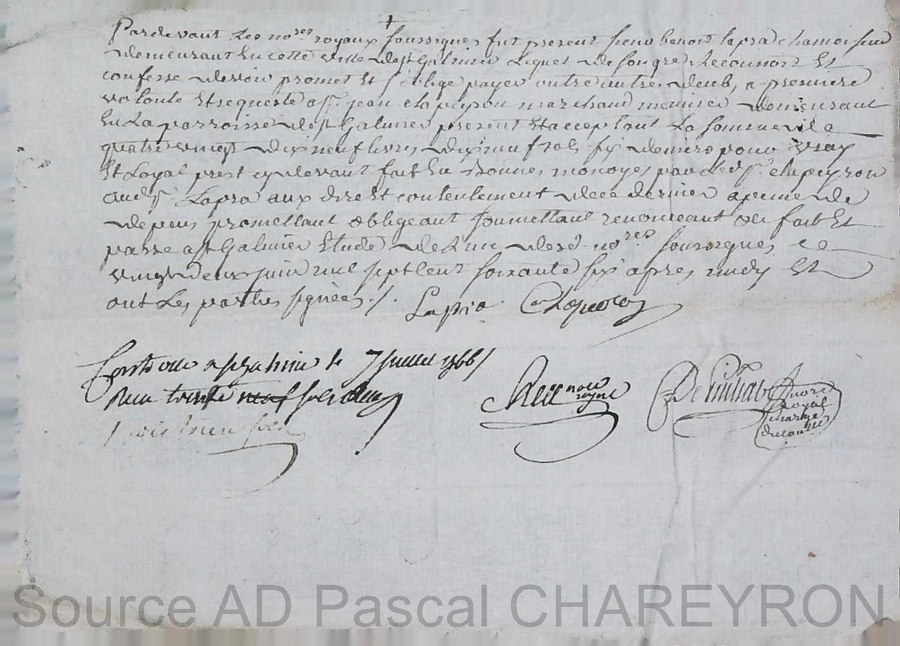 Pardevant Les no.res royaux soussignés fut present sieur benoit Lapra chamoiseur
demeurant en cette ville de st Galmier Lequel de son gré Reconnoit Et
confesse devoir promet Et s'oblige payer outre autres deub, a premiere
volonté Et requeste a s.r jean clapeyron marchand meunier demeurant
En La parroisse de st Galmier present Et acceptant La somme de
quatre vingt dix neuf livres dix neuf sols six deniers pour vray
Et Loyal prest cy devant fait En bonnes monoyes par Led s.r clapeyron
aud s.r Lapra aux dire Et contentement de ce dernier a peine de
depens promettant obligeant soumettant renonceant &c fait Et
passé a st Galmier Etude de L'un desd. no.res soussignés ce
vingt deux juin mil sept cent soixante six apres midy Et
ont Les parties signées ./. Lapra Clapeyron
a st galmier le 7 juillet 1766
Reçu treize neuf sols
trois sols
no.re royal
nore Royal
Source AD Pascal CHAREYRON